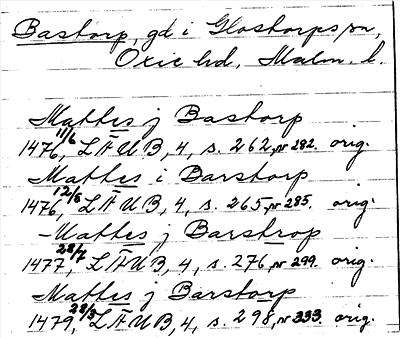 Bastorp, gd i Glostorps sn,
Oxie hd, Malm. l.
Mattes j Bastorp
1476 11/6, LÄUB, 4, s. 262, nr 282. orig.
Mattes i Barstorp
1476, 12/8, LÄUB, 4, s. 265, nr 285. orig.
–Mattes j Barstrop
1477, 28/7, LÄUB, 4, s. 276, nr 299. orig.
Mattes j Barstorp
1479, 28/3, LÄUB, 4, s. 298, nr 333 orig.